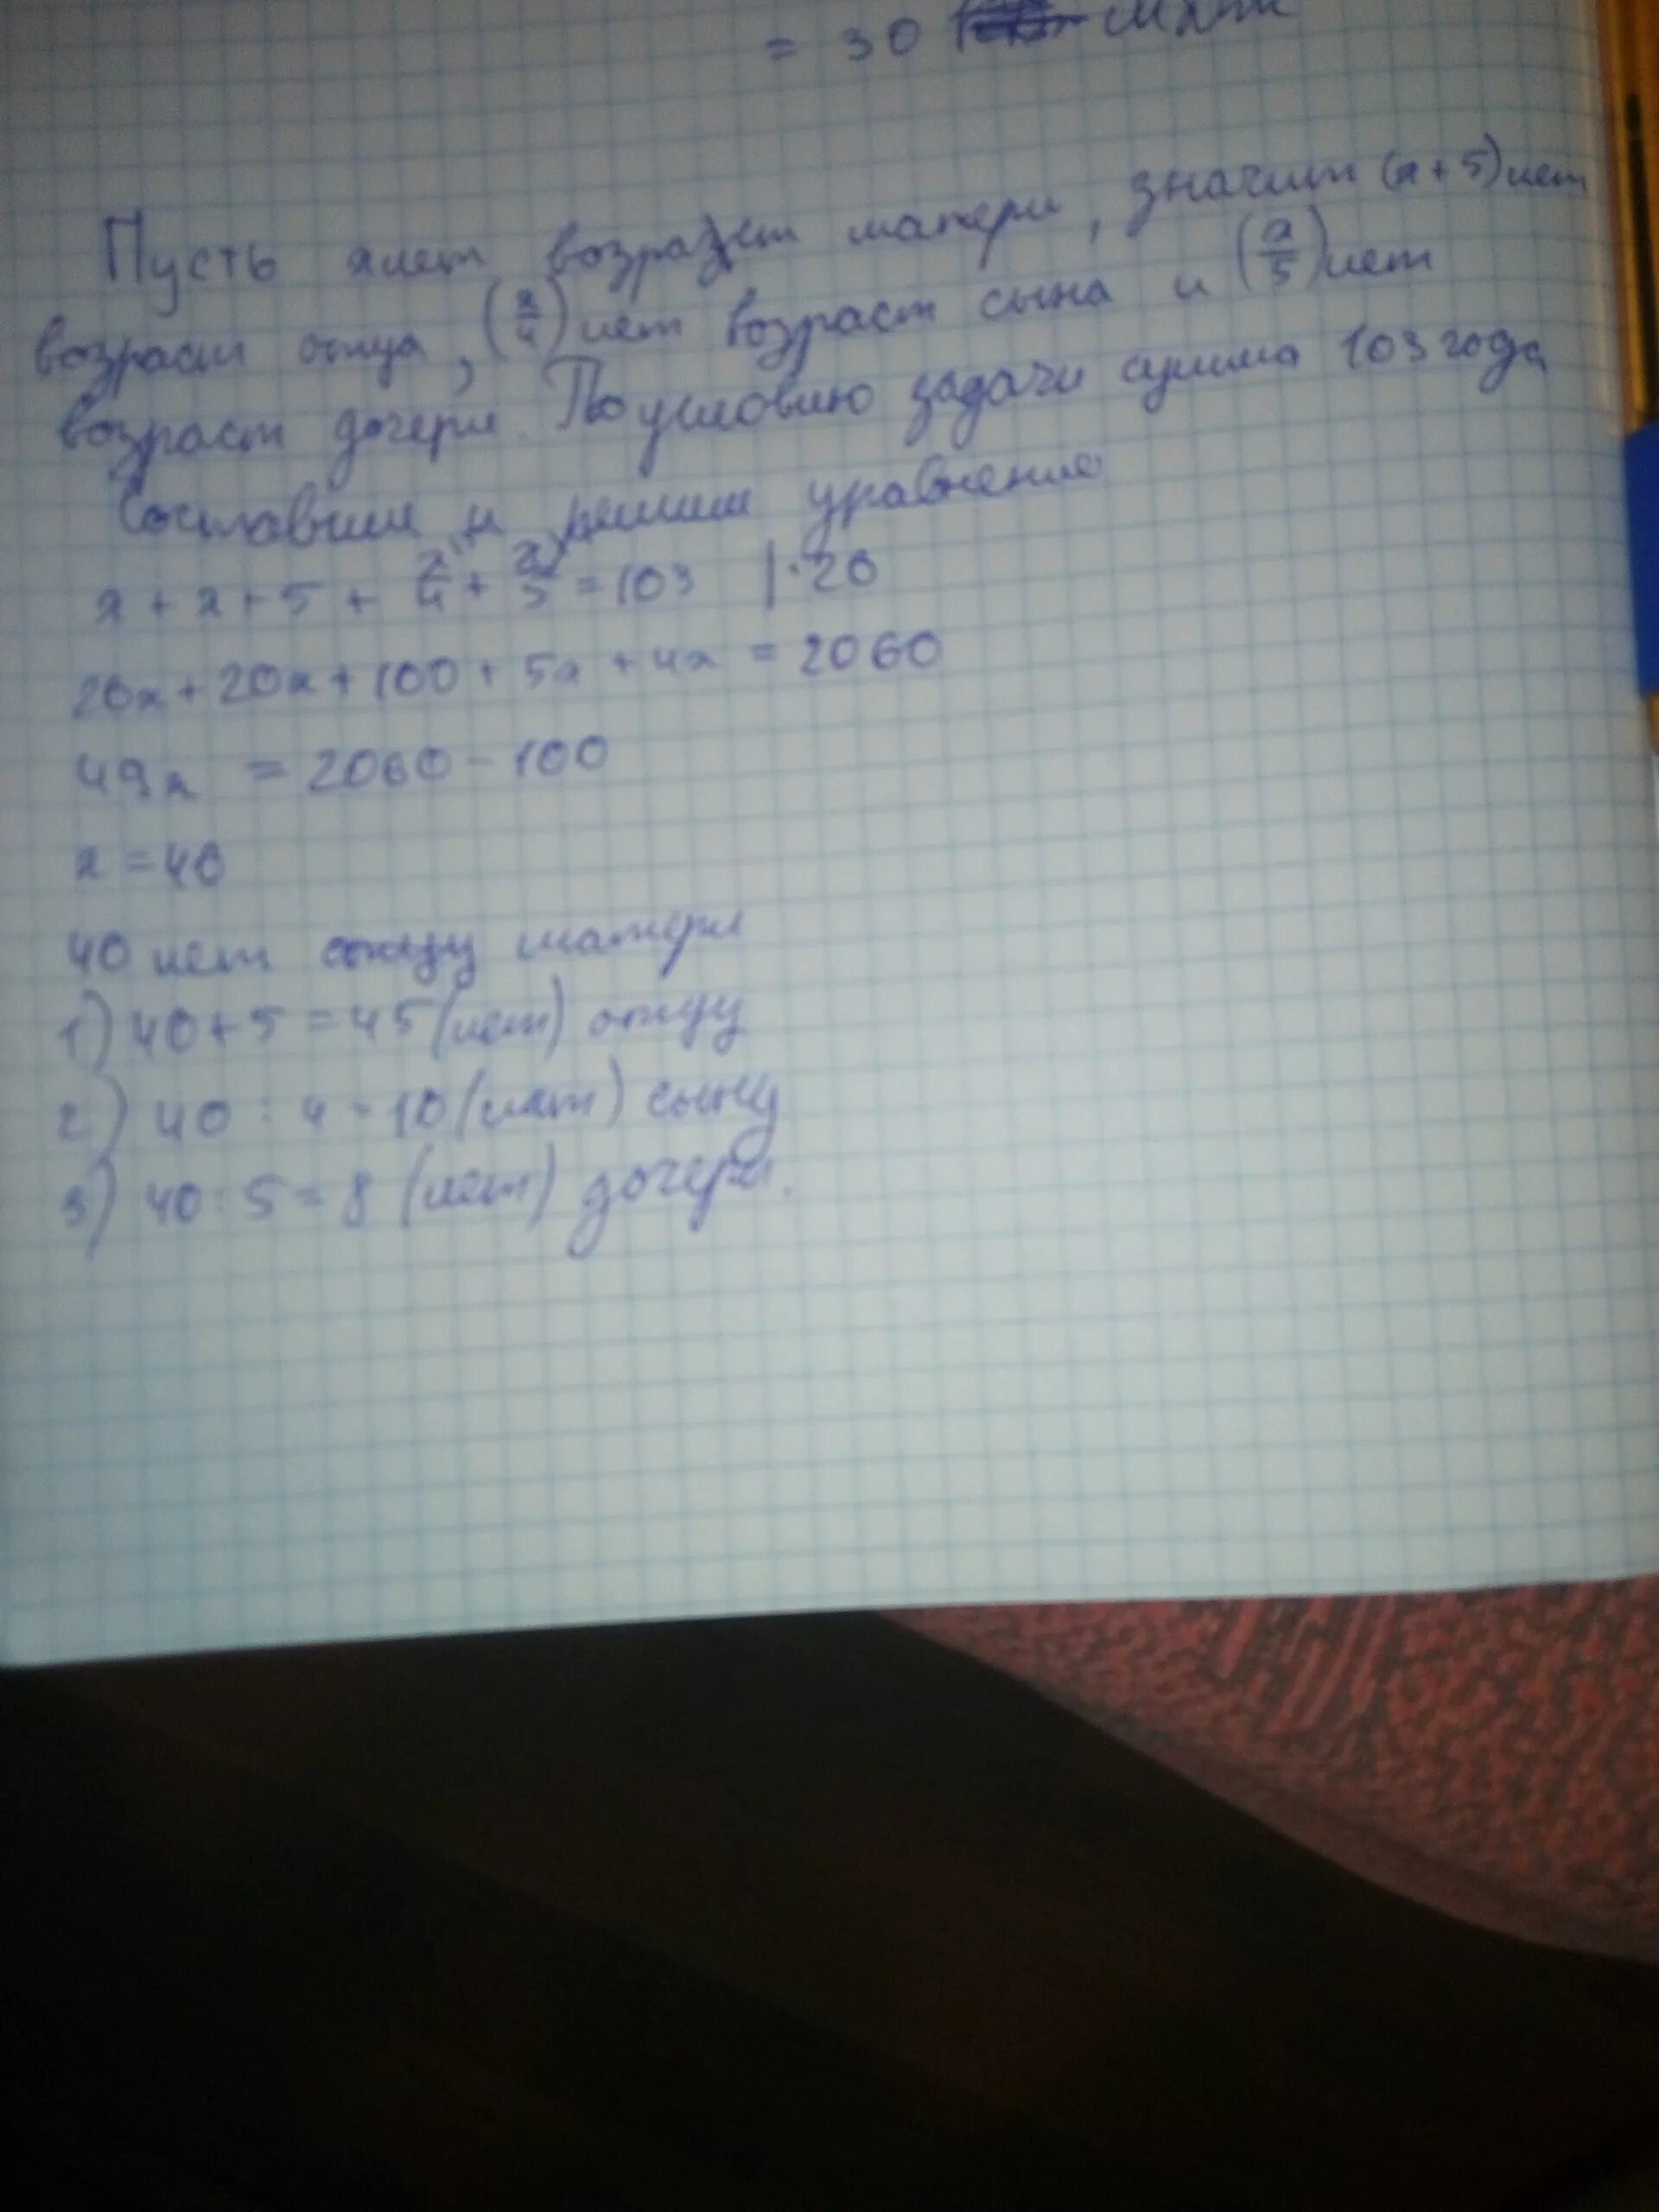 = 30
Пусть x лет возраст матери, значит (x + 5) лет
возраст отца, (x/4) лет возраст сына и (x/5) лет
возраст дочери. По условию задачи сумма 103 года
Составим и решим уравнение
x + x + 5 + x/4 + x/5 = 103 | · 20
20x + 20x + 100 + 5x + 4x = 2060
49x = 2060 - 100
x = 40
40 лет матери
1) 40 + 5 = 45 (лет) отцу
2) 40 : 4 = 10 (лет) сыну
3) 40 : 5 = 8 (лет) дочери.